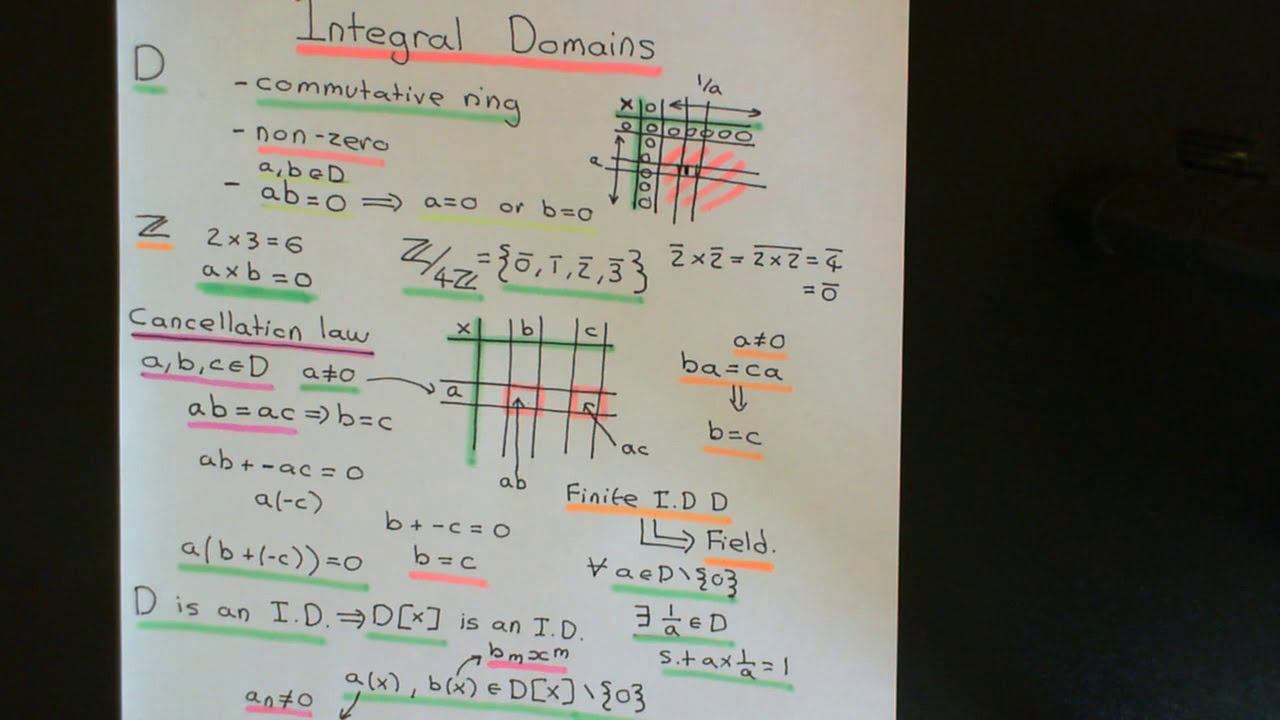 Integral Domains
D
- commutative ring
- non-zero
a, b ∈ D
- ab = 0 ⟹ a=0 or b=0
1/a
× 0
0 0 0 0 0 0 0
0
0
a 0
0
0
ℤ 2 × 3 = 6
a × b = 0
ℤ/4ℤ = {0̄, 1̄, 2̄, 3̄}
2̄ × 2̄ = \overline{2×2} = 4̄
= 0̄
Cancellation law
a, b, c ∈ D a≠0
ab = ac ⇒ b = c
ab + -ac = 0
a(-c)
a(b+(-c)) = 0
b + -c = 0
b = c
× b c
a
ab
ac
a≠0
ba = ca
⇓
b = c
Finite I.D D
Field.
∀ a ∈ D \ {0}
∃ 1/a ∈ D
s.t a × 1/a = 1
D is an I.D. ⇒ D[x] is an I.D.
b_m x^m
a(x), b(x) ∈ D[x] \ {0}
a_n ≠ 0